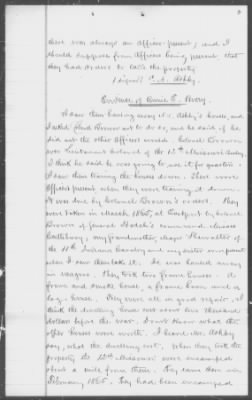 there was always an officer present, and I
should suppose from officers being present that
they had orders to take the property.
(signed) C. A. Ashby.
Evidence of Annie E. Avery.
I saw them hauling away Mrs. Ashby's house, and
I asked Colonel Brown not to do so, and he said if he
did not the other officers would. Colonel Brown
was Lieutenant Colonel of the 12th Missouri Cavalry.
I think he said he was going to use it for quarters.
I saw them tearing the house down. There were
officers present when they were tearing it down.
It was done by Colonel Brown's orders. They
were taken in March 1865, at Eastport by Colonel
Brown of General Hatch's command,
my grandmother, Major of
the 11th Indiana Cavalry and my sister were present
when I saw them take it. It was hauled away
in wagons. They took two frame houses. A
frame and smoke house, a frame barn and a
log house. They were all in good repair. I
think the dwelling house cost about two thousand
dollars before the war. Don't know what the
other houses were worth. I heard Mr. Ashby
say what the dwelling cost. When they took the
property the 12th Missouri were encamped
about a mile from there. They came there in
February 1865. They had been encamped